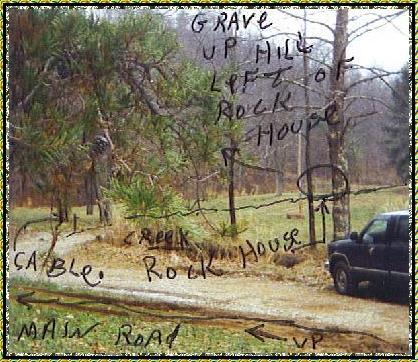 GRAVE
UP HILL
LEFT OF
ROCK
HOUSE
CREEK
CABLE.
ROCK HOUSE
MAIN ROAD
UP